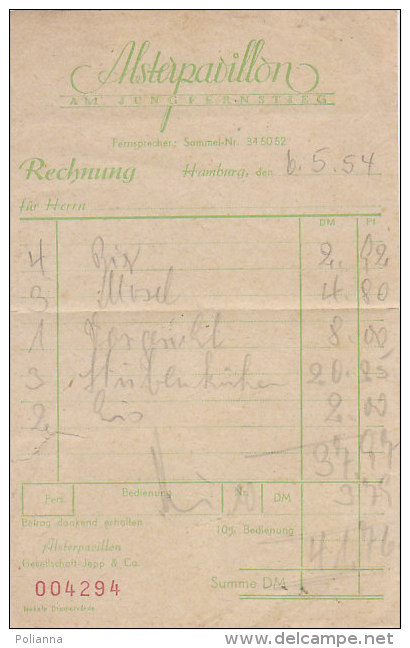 Alsterpavillon
AM JUNGFERNSTIEG
Fernsprecher: Sammel-Nr. 34 50 52
Rechnung Hamburg, den 6.5.54
für Herrn
DM Pf
4 2.92
3 Mosel 4.80
1 8.00
3 20.25
2 Eis 2.00
37.97
Pers. Bedienung Nr. 10 DM 3 79
Betrag dankend erhalten 10% Bedienung
41.76
Alsterpavillon
Gesellschaft Jepp & Co.
Summe DM
004294
Polianna www.delcampe.net